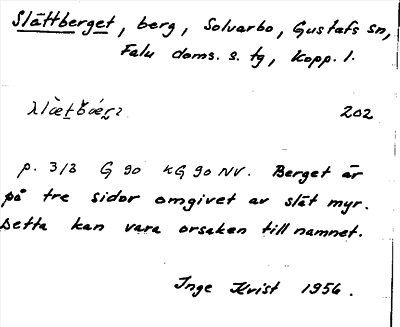 Slättberget, berg, Solvarbo, Gustafs sn,
Falu doms. s. tg, Kopp. l.
202
p. 3/3 G 90 KG 90 NV. Berget är
på tre sidor omgivet av slät myr.
Detta kan vara orsaken till namnet.
Inge Kvist 1956.